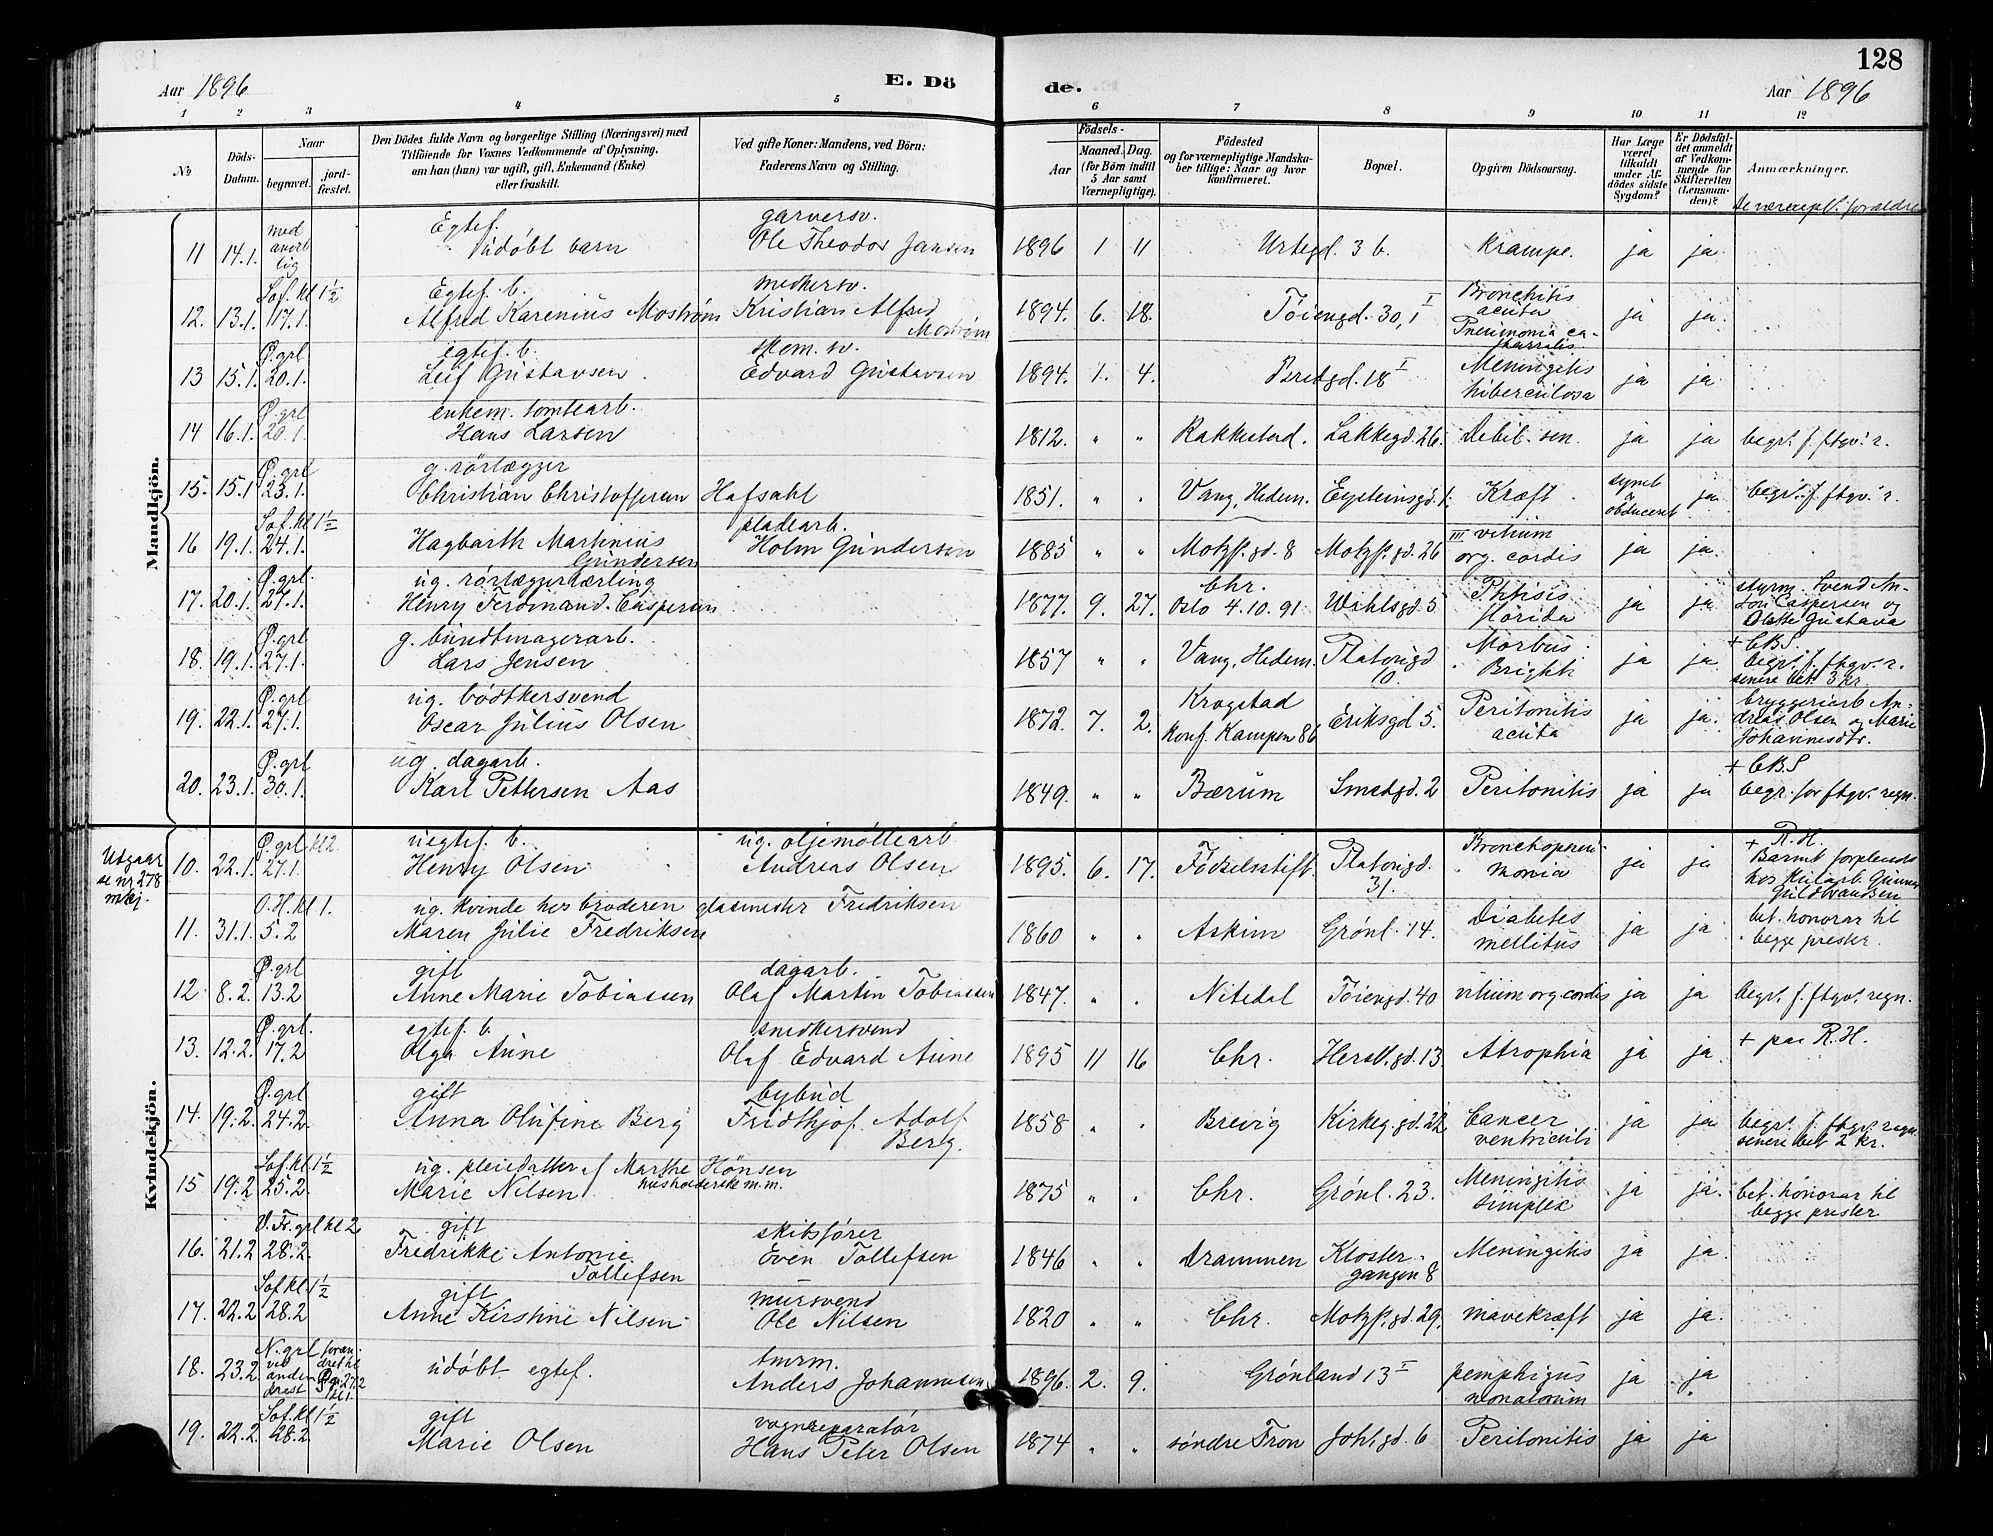 128
Aar 1896
E. Dö
de.
Aar 1896
1 2 3 4 5 6 7 8 9 10 11 12
No
Döds-Datum.
Naar
begravet.
jord-fæstet.
Den Dödes fulde Navn og borgerlige Stilling (Næringsvei) med
Tilföiende for Voxnes Vedkommende af Oplysning,
om han (hun) var ugift, gift, Enkemand (Enke)
eller fraskilt.
Ved gifte Koner: Mandens, ved Börn:
Faderens Navn og Stilling.
Födsels-
Aar
Maaned. Dag.
(for Börn indtil
5 Aar samt
Værnepligtige).
Födested
og for værnepligtige Mandska-
ber tillige: Naar og hvor
konfirmeret.
Bopæl.
Opgiven Dödsaarsag.
Har Læge
været
tilkaldt
under Af-
dödes sidste
Sygdom?
Er Dödsfal-
det anmeldt
af Vedkom-
mende for
Skifteretten
(Lensman-
den)?
Anmærkninger.
Mandkjön.
11 14.1. med anverb. lig Egtef. Udøbt barn garversv. Ole Theodor Jansen 1896 1 11 Urtegd. 3 b. Krampe. ja ja.
12. 13.1. Sof. kl 1½ 17.1. Egtef. b. Alfred Karenius Mostrøm Kristian Alfred Mostrøm 1894. 6. 18. Tøiengd. 30, I Bronchitis acuta Pneumonia ca- ja ja.
13 15.1. Ø. grl 20.1. egtef. b. Leif Gustavsen skom. sv. Edvard Gustavsen 1894. 1. 4. Bredgd. 18 I Meningitis tuberculosa ja ja
14 16.1. Ø. grl 20.1. enkem. tomtearb. Hans Larsen 1812. " " Rakkestad. Lakkegd. 26. Debil. sen. ja ja begr. f. ftgv. r.
15. 15.1 Ø. grl 23.1. g. rörlægger Christian Christoffersen Hafsahl 1851. " " Vang, Hedem. Eysteinsgd. 1. Kræft synet o obduceret ja begr. f. ftgv. r.
16 19.1. Sof. kl 1½ 24.1. Hagbarth Martinius Gundersen pladearb. Holm Gundersen 1885 " " Motzf. gd. 8 Motzf. gd. 26 III vitium org. cordis ja ja
17. 20.1. Ø. grl. 27.1. ug. rörlæggerlærling Henry Ferdinand Caspersen 1877. 9. 27. Chr. Oslo 4.10.91 Wahlsgd. 5 Phtisis florida ja ja styrm. Svend An- ton Caspersen og Olette Gustava
18. 19.1. Ø. grl 27.1. g. bundtmagerarb. Lars Jensen 1857 " " Vang, Hedem. Platousgd Morbus Brightii ja ja + CBS. begr. f. ftgv. r. senere bet. 3 kr.
19. 22.1. Ø. grl 27.1. ug. bødtkersvend Oscar Julius Olsen 1872. 7. 2. Krogstad konf. Kampen 86 Eriksgd 5. Peritonitis acuta ja ja. bryggeriarb An- dreas Olsen og Marie Johannesdtr.
20. 23.1. Ø. grl 30.1. ug. dagarb. Karl Pettersen Aas 1849. " " Bærum Smedgd. 2 Peritonitis ja ja + CBS begr. for ftgv. regn.
Kvindekjön.
Udgaar se nr 278 mkj.
10. 22.1. Ø. grl kl 2. 27.1. uegtef. b. Henry Olsen ug. oljemøllearb Andreas Olsen 1895. 6. 17. Fødselsstift. Platousgd. 31. Bronchopneu- monia ja ja + R.H. Barnet forpleiedes hos Gunnar Guldbrandsen
11. 31.1. O.H. kl 1. 5.2 ug. kvinde hos broderen glasmester Fredriksen Maren Julie Fredriksen 1860 " " Askim Grønl. 14. Diabetes mellitus ja ja bet. honorar til begge prester.
12 8.2. Ø. grl 13.2 gift Anne Marie Tobiassen dagarb. Olaf Martin Tobiassen 1847. " " Nitedal Tøiengd. 40 vitium org. cordis ja ja begr. f. ftgv. regn.
13. 12.2. Ø. grl. 17.2 egtef. b. Olga Aune snedkersvend Olaf Edvard Aune 1895 11 16 Chr. Hersl. gd. 13 Atrophia ja ja. + paa R.H.
14. 19.2. Ø. grl 24.2. gift Anna Olufine Berg bybud Fridthjof Adolf Berg. 1858 " " Brevig Kirkeg. gd. 22 Cancer ventriculi ja ja begr. f. ftgv. regn. senere bet 2 kr.
15 19.2 Sof. kl 1½ 25.2. ug. pleiedatter af Marthe Hönsen husholderske m.m. Marie Nilsen 1875 " " Chr. Grønl. 23. Meningitis simplex ja ja. bet. honorar til begge prester
16. 21.2 V. Fr. grl kl 2 28.2. gift Fredrikke Antonie Tollefsen skibsfører Even Tollefsen 1846 " " Drammen Kloster- gangen 8 Meningitis ja ja.
17. 22.2 Sof kl 1½ 28.2 gift Anne Kirstine Nilsen mursvend Ole Nilsen 1820 " " Chr. Motzf. gd. 29. mavekræft ja ja.
18. 23.2. N. grl ved anden udøbt egtef. tmrm. Anders Johannesen 1896. 2. 9. Grønland 13 I pemphigus neonatorum ja ja
19. 22.2. Sof. kl 1½ 28.2. gift Marie Olsen vognreparatør Hans Peter Olsen 1874 " " søndre Fron Joh. gd. 6 Peritonitis ja ja